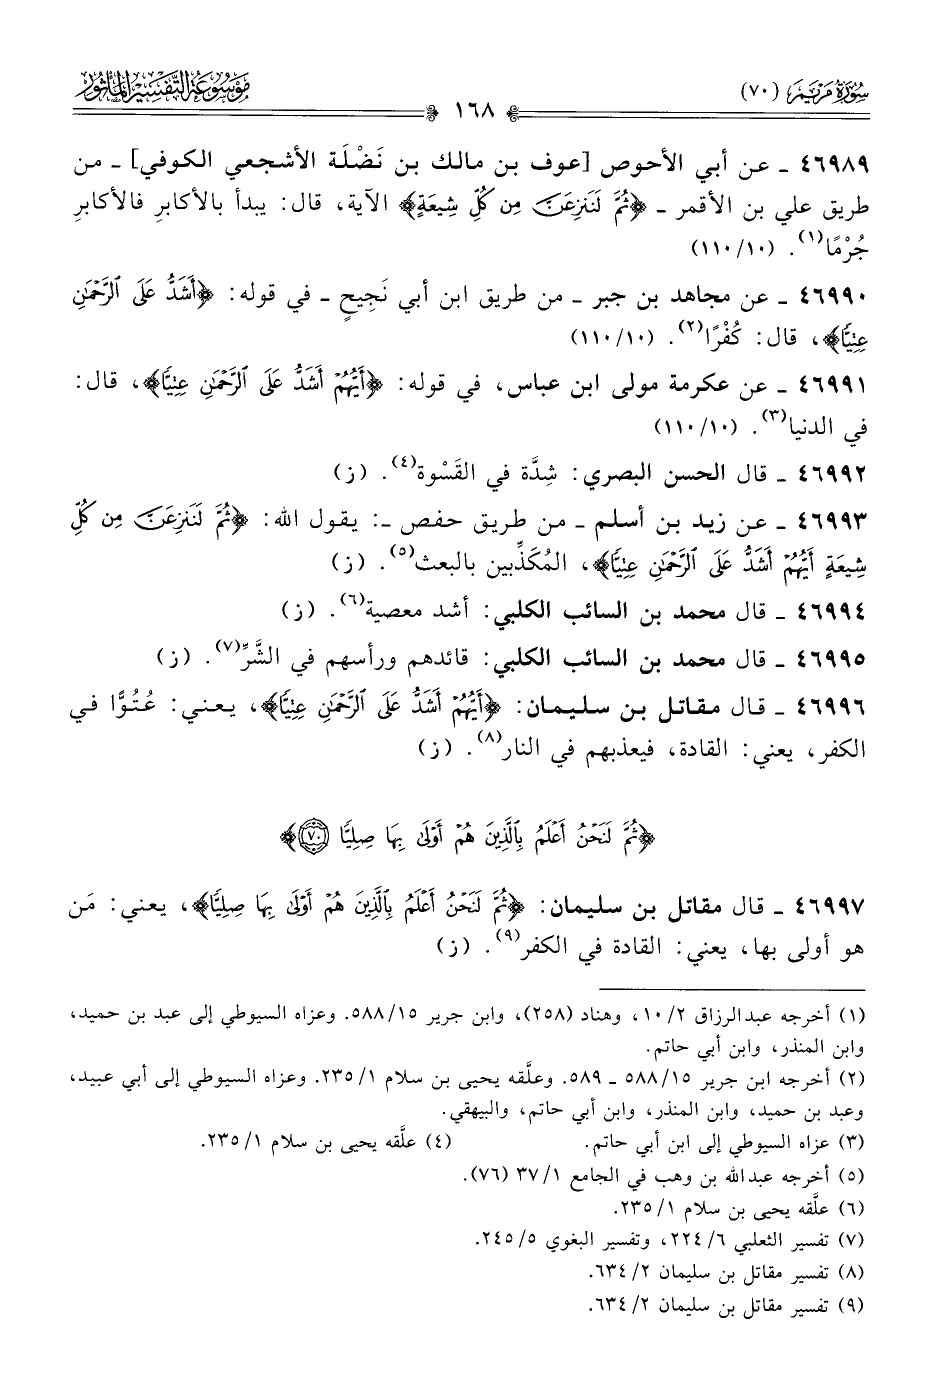 سُورَةُ مَرْيَمَ (٧٠)
١٦٨
مَوْسُوعَةُ التَّفْسِيرِ المَأْثُور
٤٦٩٨٩ ـ عن أبي الأحوص [عوف بن مالك بن نَضْلَة الأشجعي الكوفي] ـ من
طريق علي بن الأقمر ـ ﴿ثُمَّ لَنَنزِعَنَّ مِن كُلِّ شِيعَةٍ﴾ الآية، قال: يبدأ بالأكابرِ فالأكابرِ
جُرْمًا(١). (١٠/١١٠)
٤٦٩٩٠ ـ عن مجاهد بن جبر ـ من طريق ابن أبي نَجِيحٍ ـ في قوله: ﴿أَشَدُّ عَلَى ٱلرَّحْمَٰنِ
عِتِيًّا﴾، قال: كُفْرًا(٢). (١٠/١١٠)
٤٦٩٩١ ـ عن عكرمة مولى ابن عباس، في قوله: ﴿أَيُّهُمْ أَشَدُّ عَلَى ٱلرَّحْمَٰنِ عِتِيًّا﴾، قال:
في الدنيا(٣). (١٠/١١٠)
٤٦٩٩٢ ـ قال الحسن البصري: شِدَّة في القَسْوة(٤). (ز)
٤٦٩٩٣ ـ عن زيد بن أسلم ـ من طريق حفص ـ: يقول الله: ﴿ثُمَّ لَنَنزِعَنَّ مِن كُلِّ
شِيعَةٍ أَيُّهُمْ أَشَدُّ عَلَى ٱلرَّحْمَٰنِ عِتِيًّا﴾، المُكَذِّبين بالبعث(٥). (ز)
٤٦٩٩٤ ـ قال محمد بن السائب الكلبي: أشد معصية(٦). (ز)
٤٦٩٩٥ ـ قال محمد بن السائب الكلبي: قائدهم ورأسهم في الشَّرِّ(٧). (ز)
٤٦٩٩٦ ـ قال مقاتل بن سليمان: ﴿أَيُّهُمْ أَشَدُّ عَلَى ٱلرَّحْمَٰنِ عِتِيًّا﴾، يعني: عُتُوًّا في
الكفر، يعني: القادة، فيعذبهم في النار(٨). (ز)
﴿ثُمَّ لَنَحْنُ أَعْلَمُ بِٱلَّذِينَ هُمْ أَوْلَىٰ بِهَا صِلِيًّا ٧٠﴾
٤٦٩٩٧ ـ قال مقاتل بن سليمان: ﴿ثُمَّ لَنَحْنُ أَعْلَمُ بِٱلَّذِينَ هُمْ أَوْلَىٰ بِهَا صِلِيًّا﴾، يعني: مَن
هو أولى بها، يعني: القادة في الكفر(٩). (ز)
(١) أخرجه عبدالرزاق ٢/ ١٠، وهناد (٢٥٨)، وابن جرير ١٥/ ٥٨٨. وعزاه السيوطي إلى عبد بن حميد،
وابن المنذر، وابن أبي حاتم.
(٢) أخرجه ابن جرير ١٥/ ٥٨٨ ـ ٥٨٩. وعلَّقه يحيى بن سلام ١/ ٢٣٥. وعزاه السيوطي إلى أبي عبيد،
وعبد بن حميد، وابن المنذر، وابن أبي حاتم، والبيهقي.
(٣) عزاه السيوطي إلى ابن أبي حاتم. (٤) علَّقه يحيى بن سلام ١/ ٢٣٥.
(٥) أخرجه عبدالله بن وهب في الجامع ١/ ٣٧ (٧٦).
(٦) علَّقه يحيى بن سلام ١/ ٢٣٥.
(٧) تفسير الثعلبي ٦/ ٢٢٤، وتفسير البغوي ٥/ ٢٤٥.
(٨) تفسير مقاتل بن سليمان ٢/ ٦٣٤.
(٩) تفسير مقاتل بن سليمان ٢/ ٦٣٤.